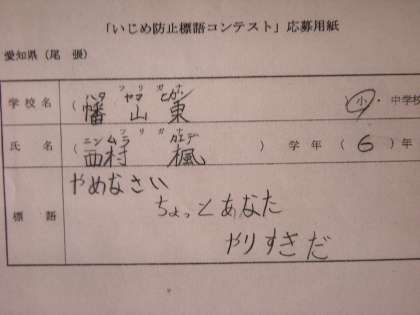 「いじめ防止標語コンテスト」応募用紙
愛知県（尾　張）
フリガナ
ハタ　ヤマ　ヒガシ
学校名（幡　山　東　）小・中学校
フリガナ
ニシムラ　カエデ
氏　名（西村　楓　）学　年（6）年
やめなさい
標　語　ちょっとあなた
やりすぎだ